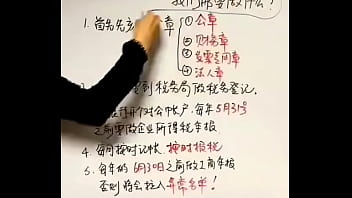 我们需要做什么?
1. 首先先
章
① 公章
② 财务章
③ 发票专用章
④ 法人章
到税务局做税务登记。
开个对公帐户,每年5月31号
之前要做企业所得税年报
4. 每月按时记帐,按时报税
5. 每年的6月30日之前做工商年报
否则将会拉入异常名单!